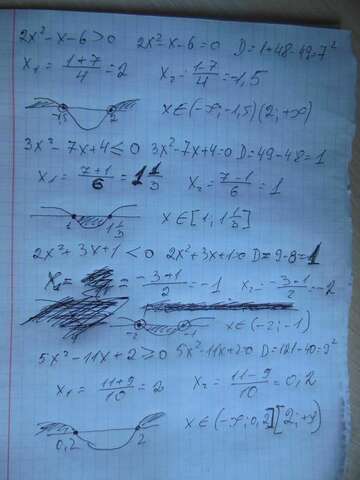 2x² - x - 6 > 0 2x² - x - 6 = 0 D = 1 + 48 = 49 = 7²
x₁ = (1+7)/4 = 2 x₂ = (1-7)/4 = -1,5
-1,5 2 x ∈ (-∞; -1,5) (2; +∞)
3x² - 7x + 4 ≤ 0 3x² - 7x + 4 = 0 D = 49 - 48 = 1
x₁ = (7+1)/6 = 1 1/3 x₂ = (7-1)/6 = 1
1 1 1/3 x ∈ [1, 1 1/3]
2x² + 3x + 1 < 0 2x² + 3x + 1 = 0 D = 9 - 8 = 1
x₁ = (-3+1)/2 = -1 x₂ = (-3-1)/2 = -2
-2 -1 x ∈ (-2; -1)
5x² - 11x + 2 ≥ 0 5x² - 11x + 2 = 0 D = 121 - 40 = 9²
x₁ = (11+9)/10 = 2 x₂ = (11-9)/10 = 0,2
0,2 2 x ∈ (-∞; 0,2] [2; +∞)